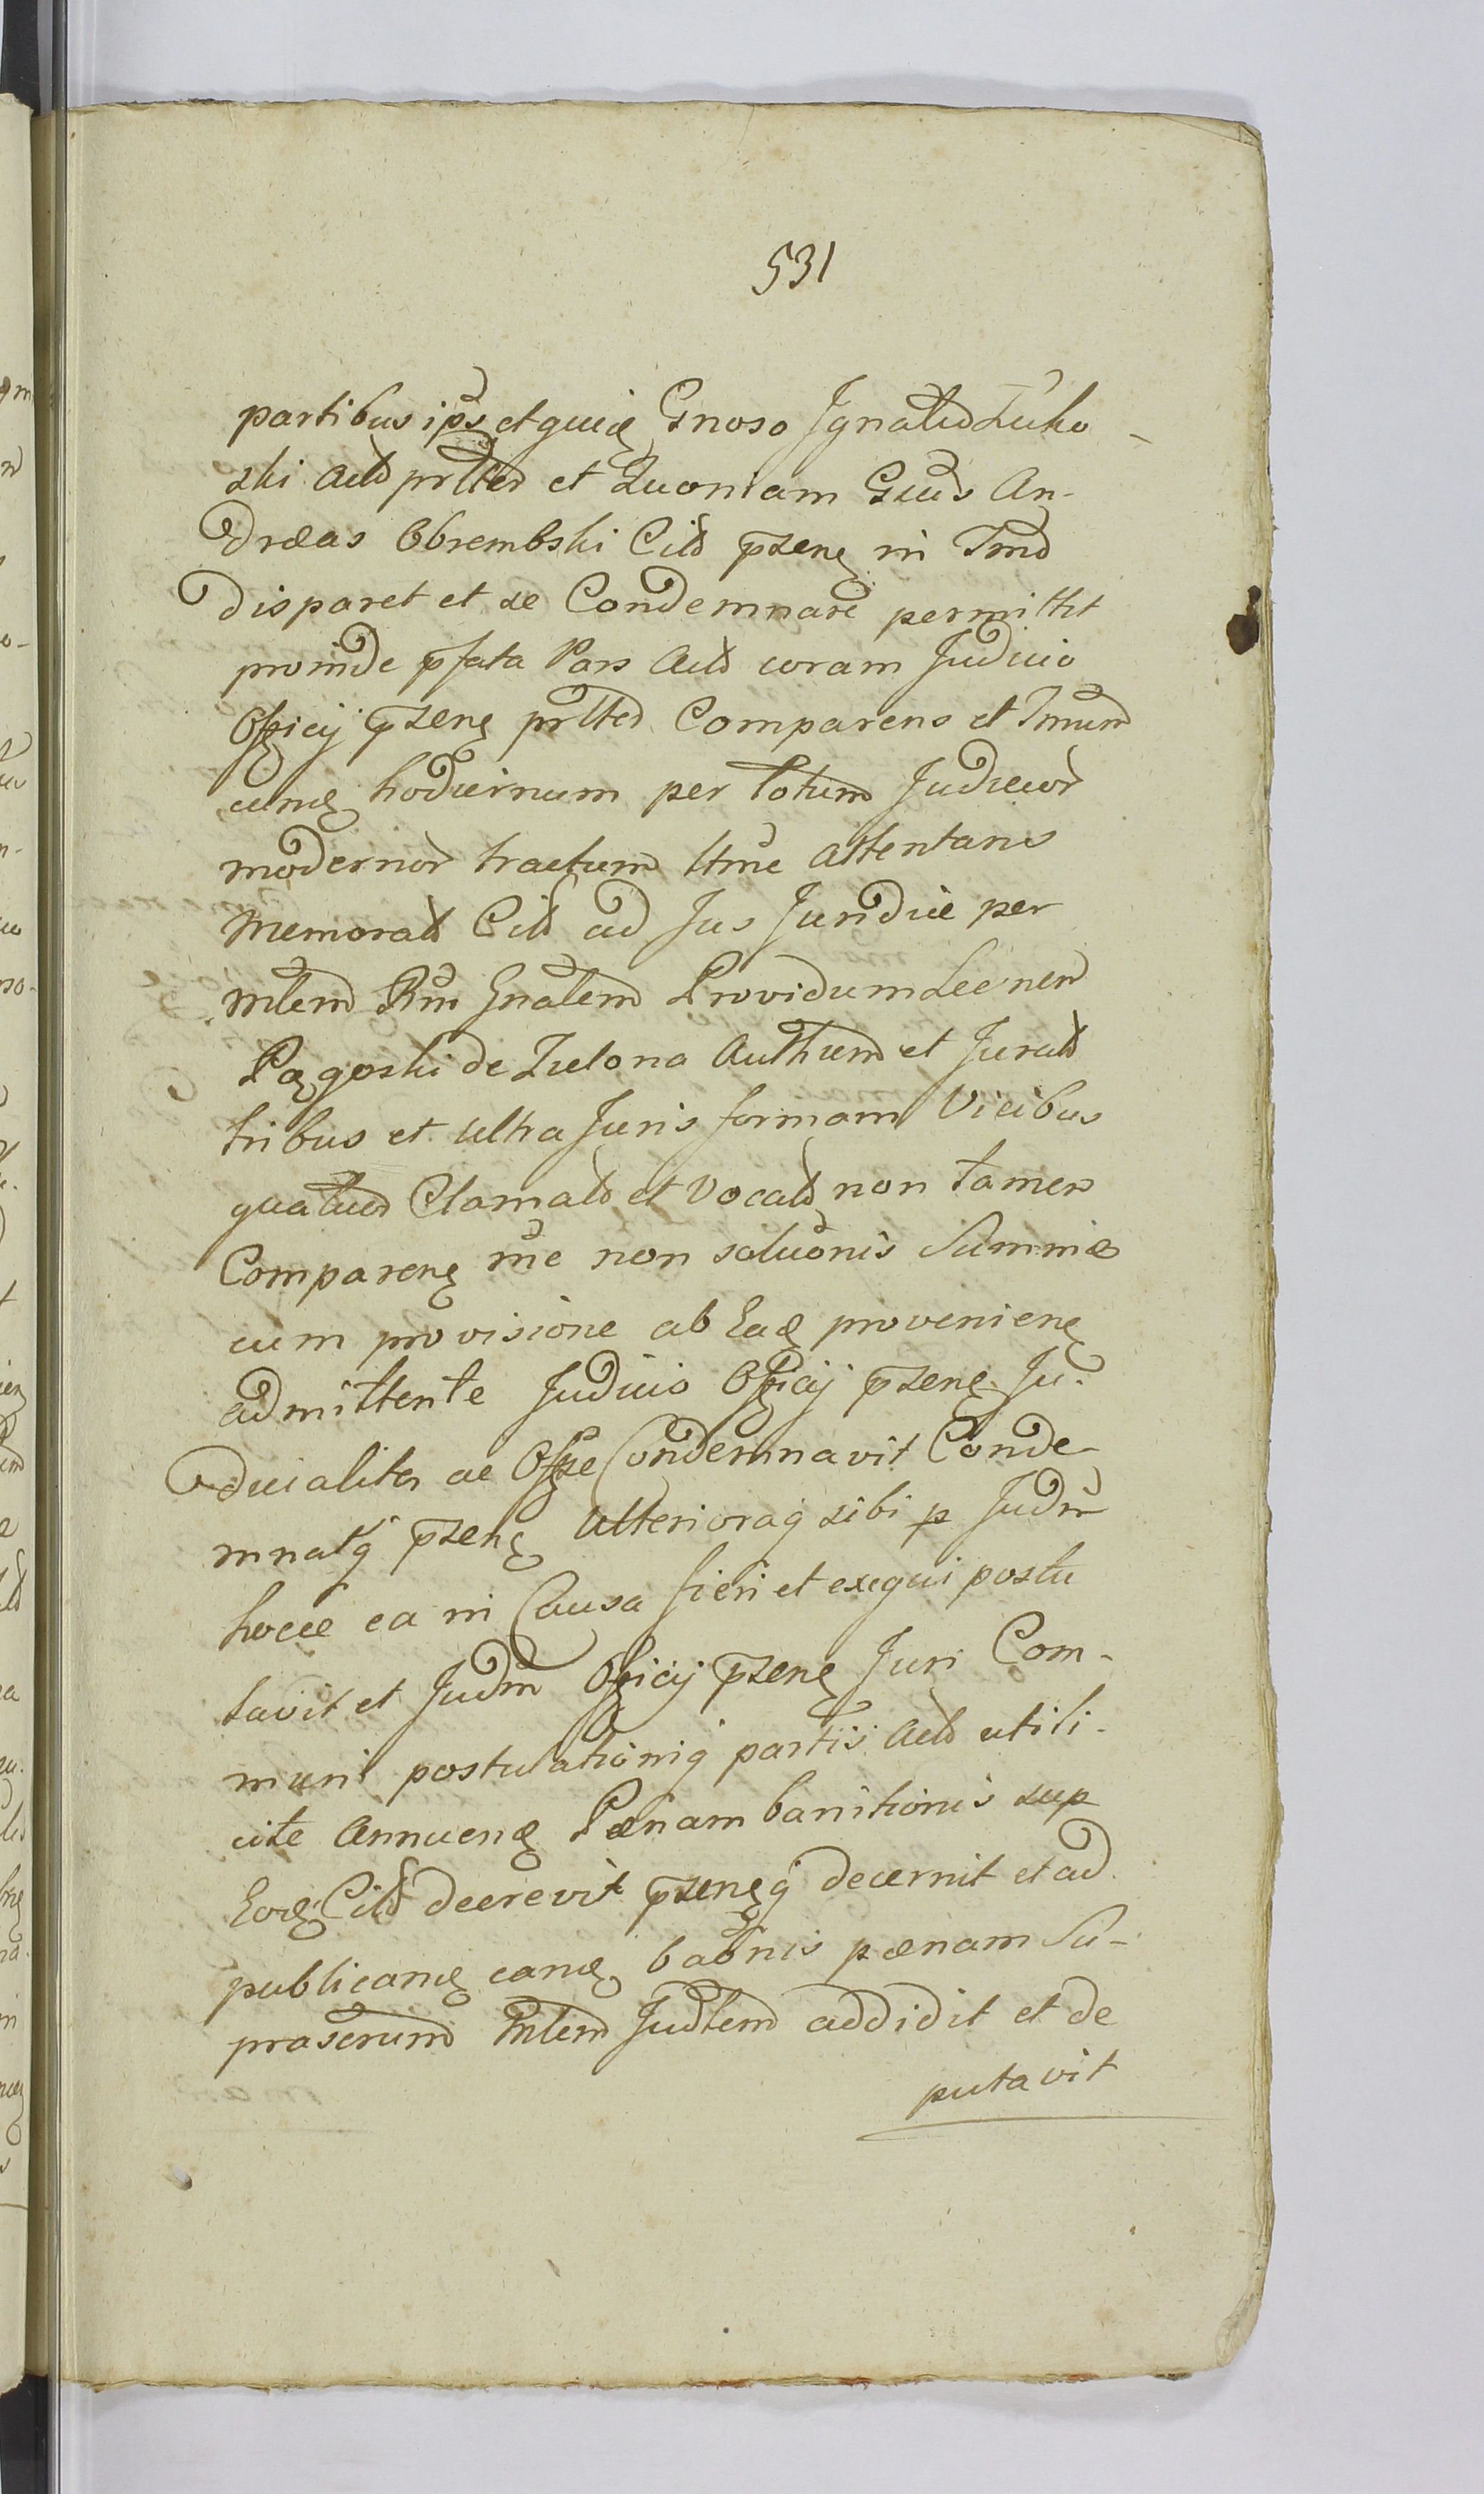 531
partibus ips et quid Gnoso Ignatio Zuko-
ski Actd prlter et Quoniam Gnus An-
dræas Obrembski Citd pzenş in Tmo
disparet et se Condemnare permittit
proinde pfata Pars Actd coram Judicio
Officij pzenş prlter Comparens et Tmum
eumd hodiernum per totum Judicior
modernor tractum ltme attentans
Memorald Citd ad Jus Juridice per
mlem Rni Gnalem Providum
de Zielona Authum et Jurald
tribus et ultra Juris formam Vicibus
quatuor Clamald et Vocald non tamen
Comparenş rne non soluonis Summæ
cum provisione ab Ead provenienş
admittente Judicio Officij pzenş Ju-
dicialiter ac Offse Condemnavit Conde-
mnatq pzenş Ulterioraq sibi p Judm
hocce ea in Causa fieri et exequi postu
lavit et Judm Officij pzenş Juri Com-
muni postulationiq partis Actd utili-
cite Annuend Pænam bannitionis sup
Eord Citd decrevit pzenşq decernit et ad
publicand eand baonis pænam Su-
prascrium Mlem Judlem addidit et de
putavit